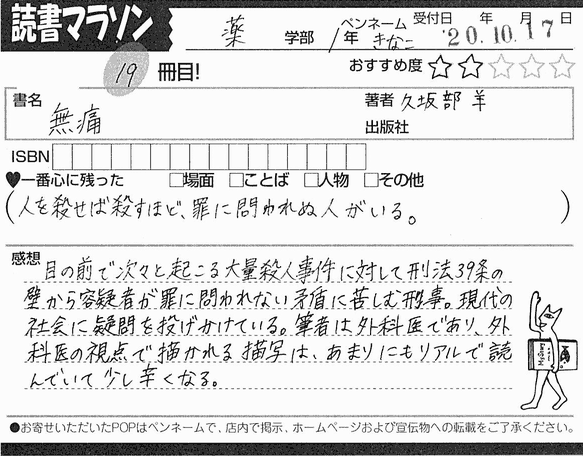 読書マラソン
薬 学部 1年 ペンネーム きなこ 受付日 年 月 日 '20.10.17
19 冊目! おすすめ度 ☆☆☆☆☆
書名 無痛 著者 久坂部 羊
出版社
ISBN
♥一番心に残った □場面 □ことば □人物 □その他
(人を殺せば殺すほど、罪に問われぬ人がいる。)
感想 目の前で次々と起こる大量殺人事件に対して刑法39条の
壁から容疑者が罪に問われない矛盾に苦しむ刑事。現代の
社会に疑問を投げかけている。筆者は外科医であり、外
科医の視点で描かれる描写は、あまりにもリアルで読
んでいて少し辛くなる。
●お寄せいただいたPOPはペンネームで、店内で掲示、ホームページおよび宣伝物への転載をご了承ください。